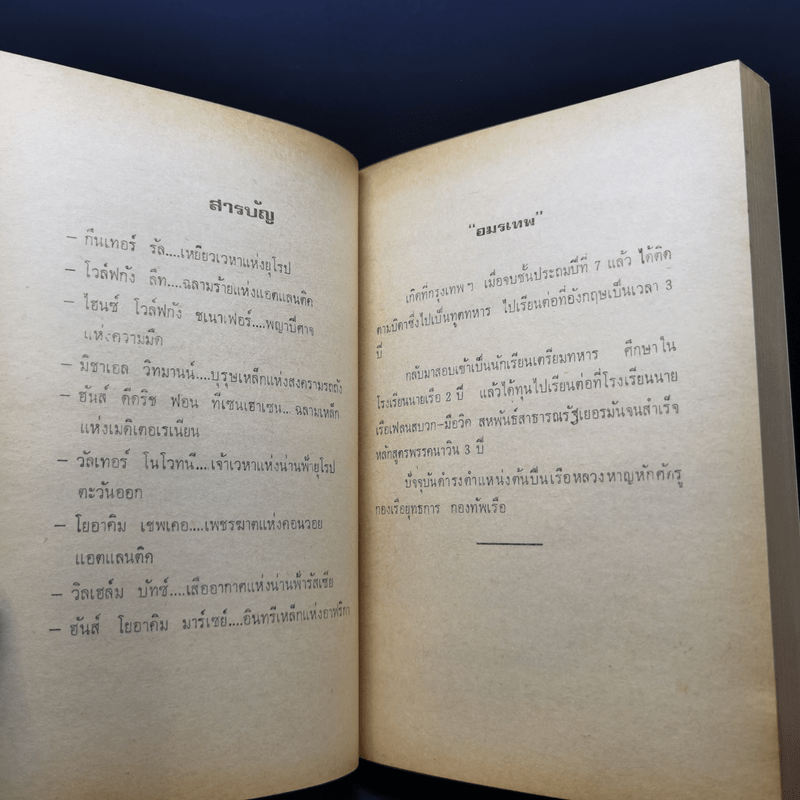 สารบัญ
– กึนเทอร์ รัล....เหยี่ยวเวหาแห่งยุโรป
– โวล์ฟกัง ลืท....ฉลามร้ายแห่งแอตแลนติค
– ไฮนซ์ โวล์ฟกัง ชเนาเฟอร์....พญาปีศาจ
แห่งความมืด
– มิชาเอล วิทมานน์....บุรุษเหล็กแห่งสงครามรถถัง
– ฮันส์ ดีดริช ฟอน ทีเซนเฮาเซน... ฉลามเหล็ก
แห่งเมดิเตอเรเนียน
– วัลเทอร์ โนโวทนี....เจ้าเวหาแห่งน่านฟ้ายุโรป
ตะวันออก
– โยอาคิม เชพเคอ....เพชรฆาตแห่งคอนวอย
แอตแลนติค
– วิลเฮล์ม บัทซ์....เสืออากาศแห่งน่านฟ้ารัสเซีย
– ฮันส์ โยอาคิม มาร์เซย์....อินทรีเหล็กแห่งอาฟริกา
"อมรเทพ"
เกิดที่กรุงเทพฯ เมื่อจบชั้นประถมปีที่ 7 แล้ว ได้ติด
ตามบิดาซึ่งไปเป็นทูตทหาร ไปเรียนต่อที่อังกฤษเป็นเวลา 3
ปี
กลับมาสอบเข้าเป็นนักเรียนเตรียมทหาร ศึกษาใน
โรงเรียนนายเรือ 2 ปี แล้วได้ทุนไปเรียนต่อที่โรงเรียนนาย
เรือเฟลนสบวก-มือวิค สหพันธ์สาธารณรัฐเยอรมันจนสำเร็จ
หลักสูตรพรรคนาวิน 3 ปี
ปัจจุบันดำรงตำแหน่งต้นปืนเรือหลวงหาญหักศัตรู
กองเรือยุทธการ กองทัพเรือ